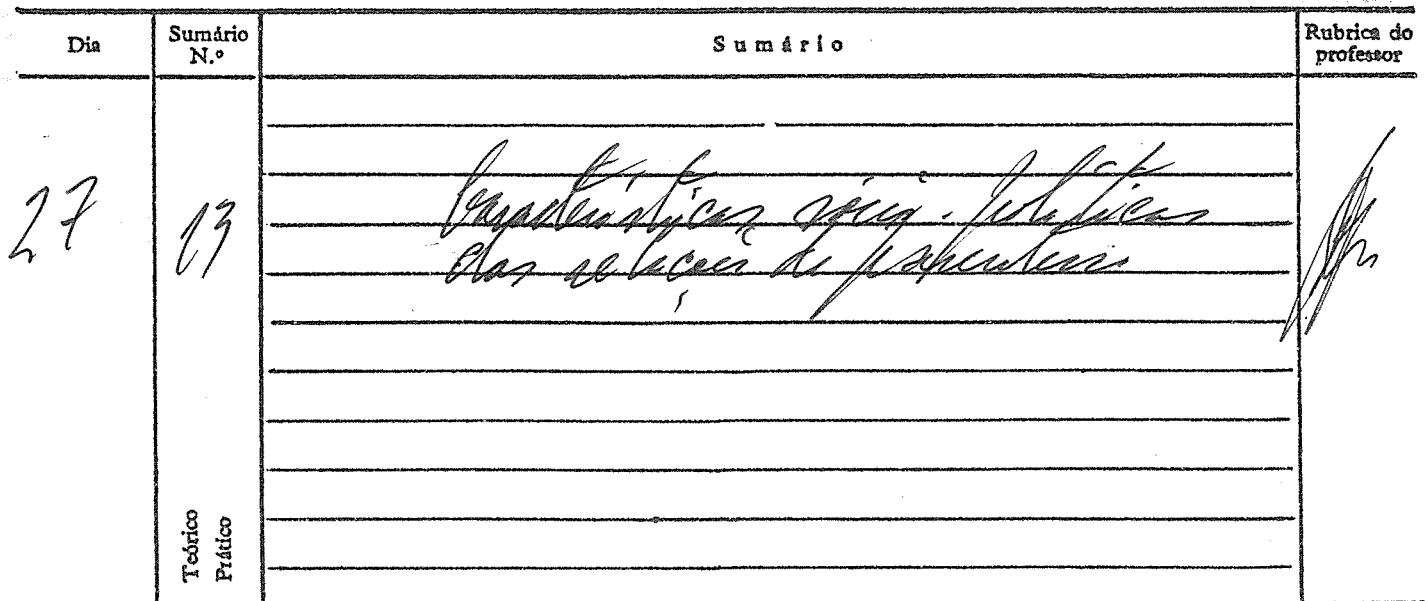 Dia
Sumário N.º
Sumário
Rubrica do professor
27
13
Características sócio-políticas
das relações de parentesco
Teórico
Prático